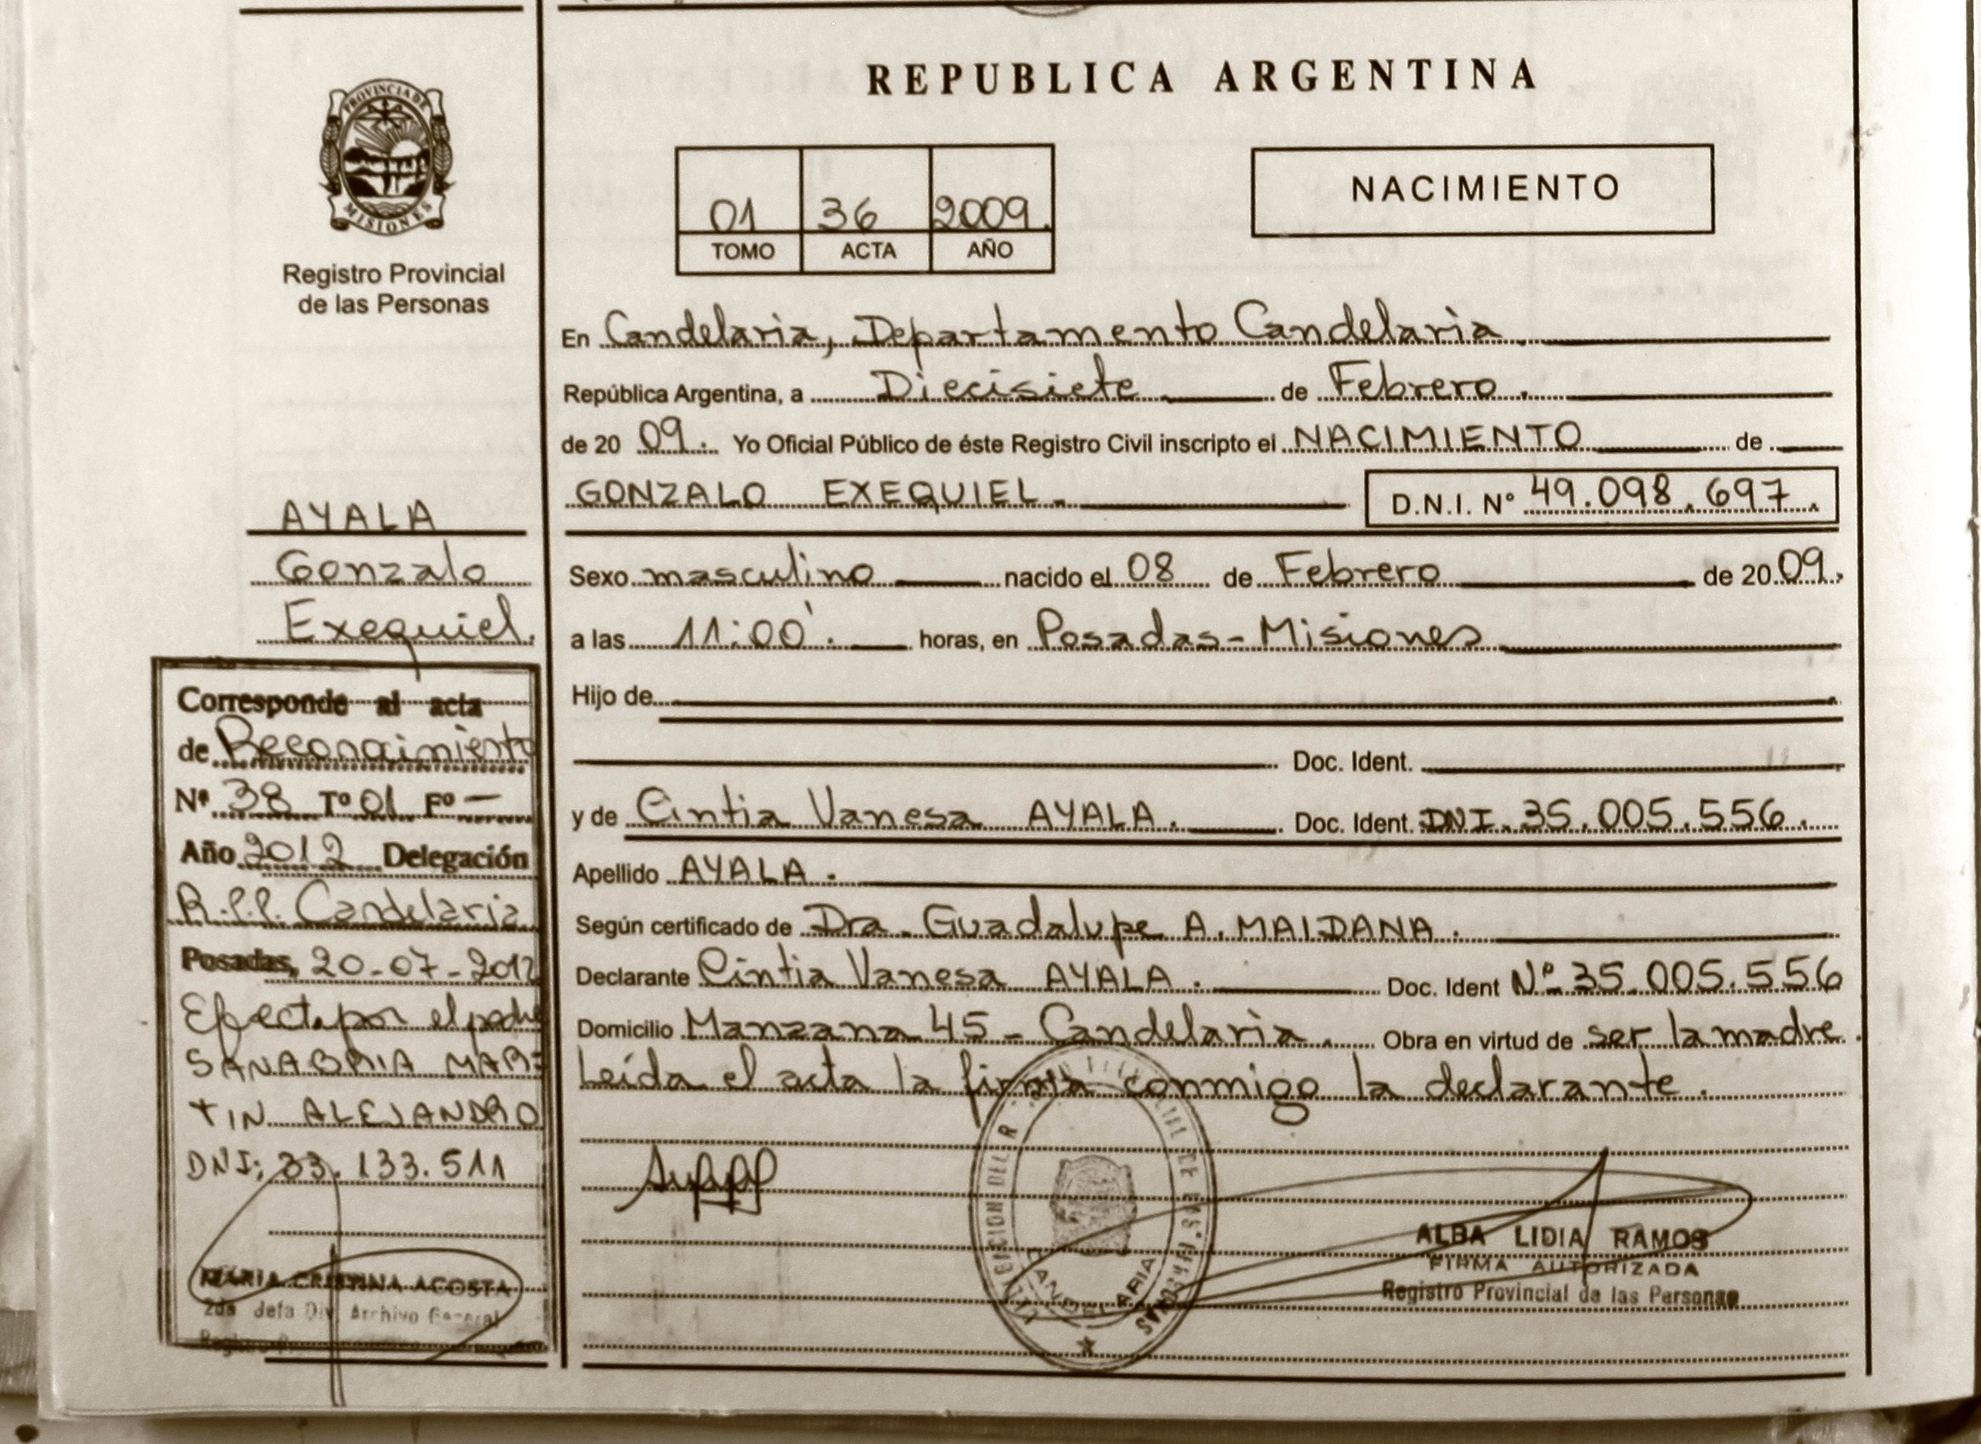 PROVINCIA DE
MISIONES
Registro Provincial
de las Personas
AYALA
Gonzalo
Exequiel.
Corresponde al acta
de Reconocimiento
Nº 38 Tº 01 Fº —
Año 2012 Delegación
R.P.P. Candelaria
Posadas, 20-07-2012
Efect. por el padre
SANABRIA MAR
TIN ALEJANDRO
DNI; 33.133.511
MARIA CRISTINA ACOSTA
2da Jefa Div. Archivo General
REPUBLICA ARGENTINA
01 36 2009.
TOMO ACTA AÑO
NACIMIENTO
En Candelaria, Departamento Candelaria.
República Argentina, a Diecisiete de Febrero.
de 20 09. Yo Oficial Público de éste Registro Civil inscripto el NACIMIENTO de
GONZALO EXEQUIEL. D.N.I. Nº 49.098.697.
Sexo masculino nacido el 08 de Febrero de 20 09.
a las 11:00'. horas, en Posadas-Misiones
Hijo de
Doc. Ident.
y de Cintia Vanesa AYALA. Doc. Ident. DNI. 35.005.556.
Apellido AYALA.
Según certificado de Dra. Guadalupe A. MAIDANA.
Declarante Cintia Vanesa AYALA. Doc. Ident Nº 35.005.556
Domicilio Manzana 45 - Candelaria. Obra en virtud de ser la madre.
Leída el acta la firma conmigo la declarante.
ALBA LIDIA RAMOS
FIRMA AUTORIZADA
Registro Provincial de las Personas